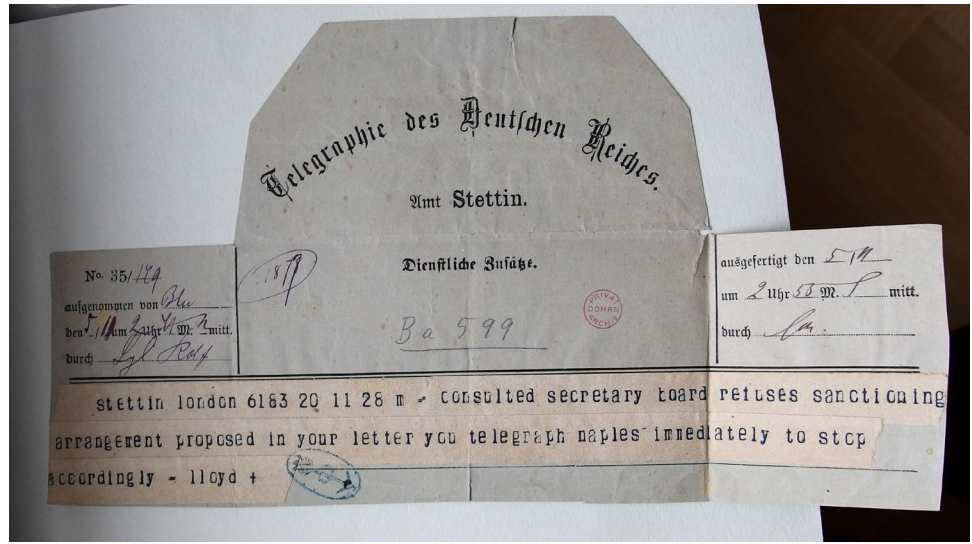 Telegraphie des Deutschen Reiches.
Amt Stettin.
Dienstliche Zusätze.
No. 35/179
aufgenommen von Bln
den 5/11 um 2 Uhr M. mitt.
durch
187
Ba 599
PRIVAT
DOHRN
ARCHIV
ausgefertigt den 5/11
um 2 Uhr 55 M. mitt.
durch
stettin london 6183 20 11 28 m - consulted secretary board refuses sanctioning
arrangement proposed in your letter you telegraph naples immediately to stop
accordingly - lloyd +